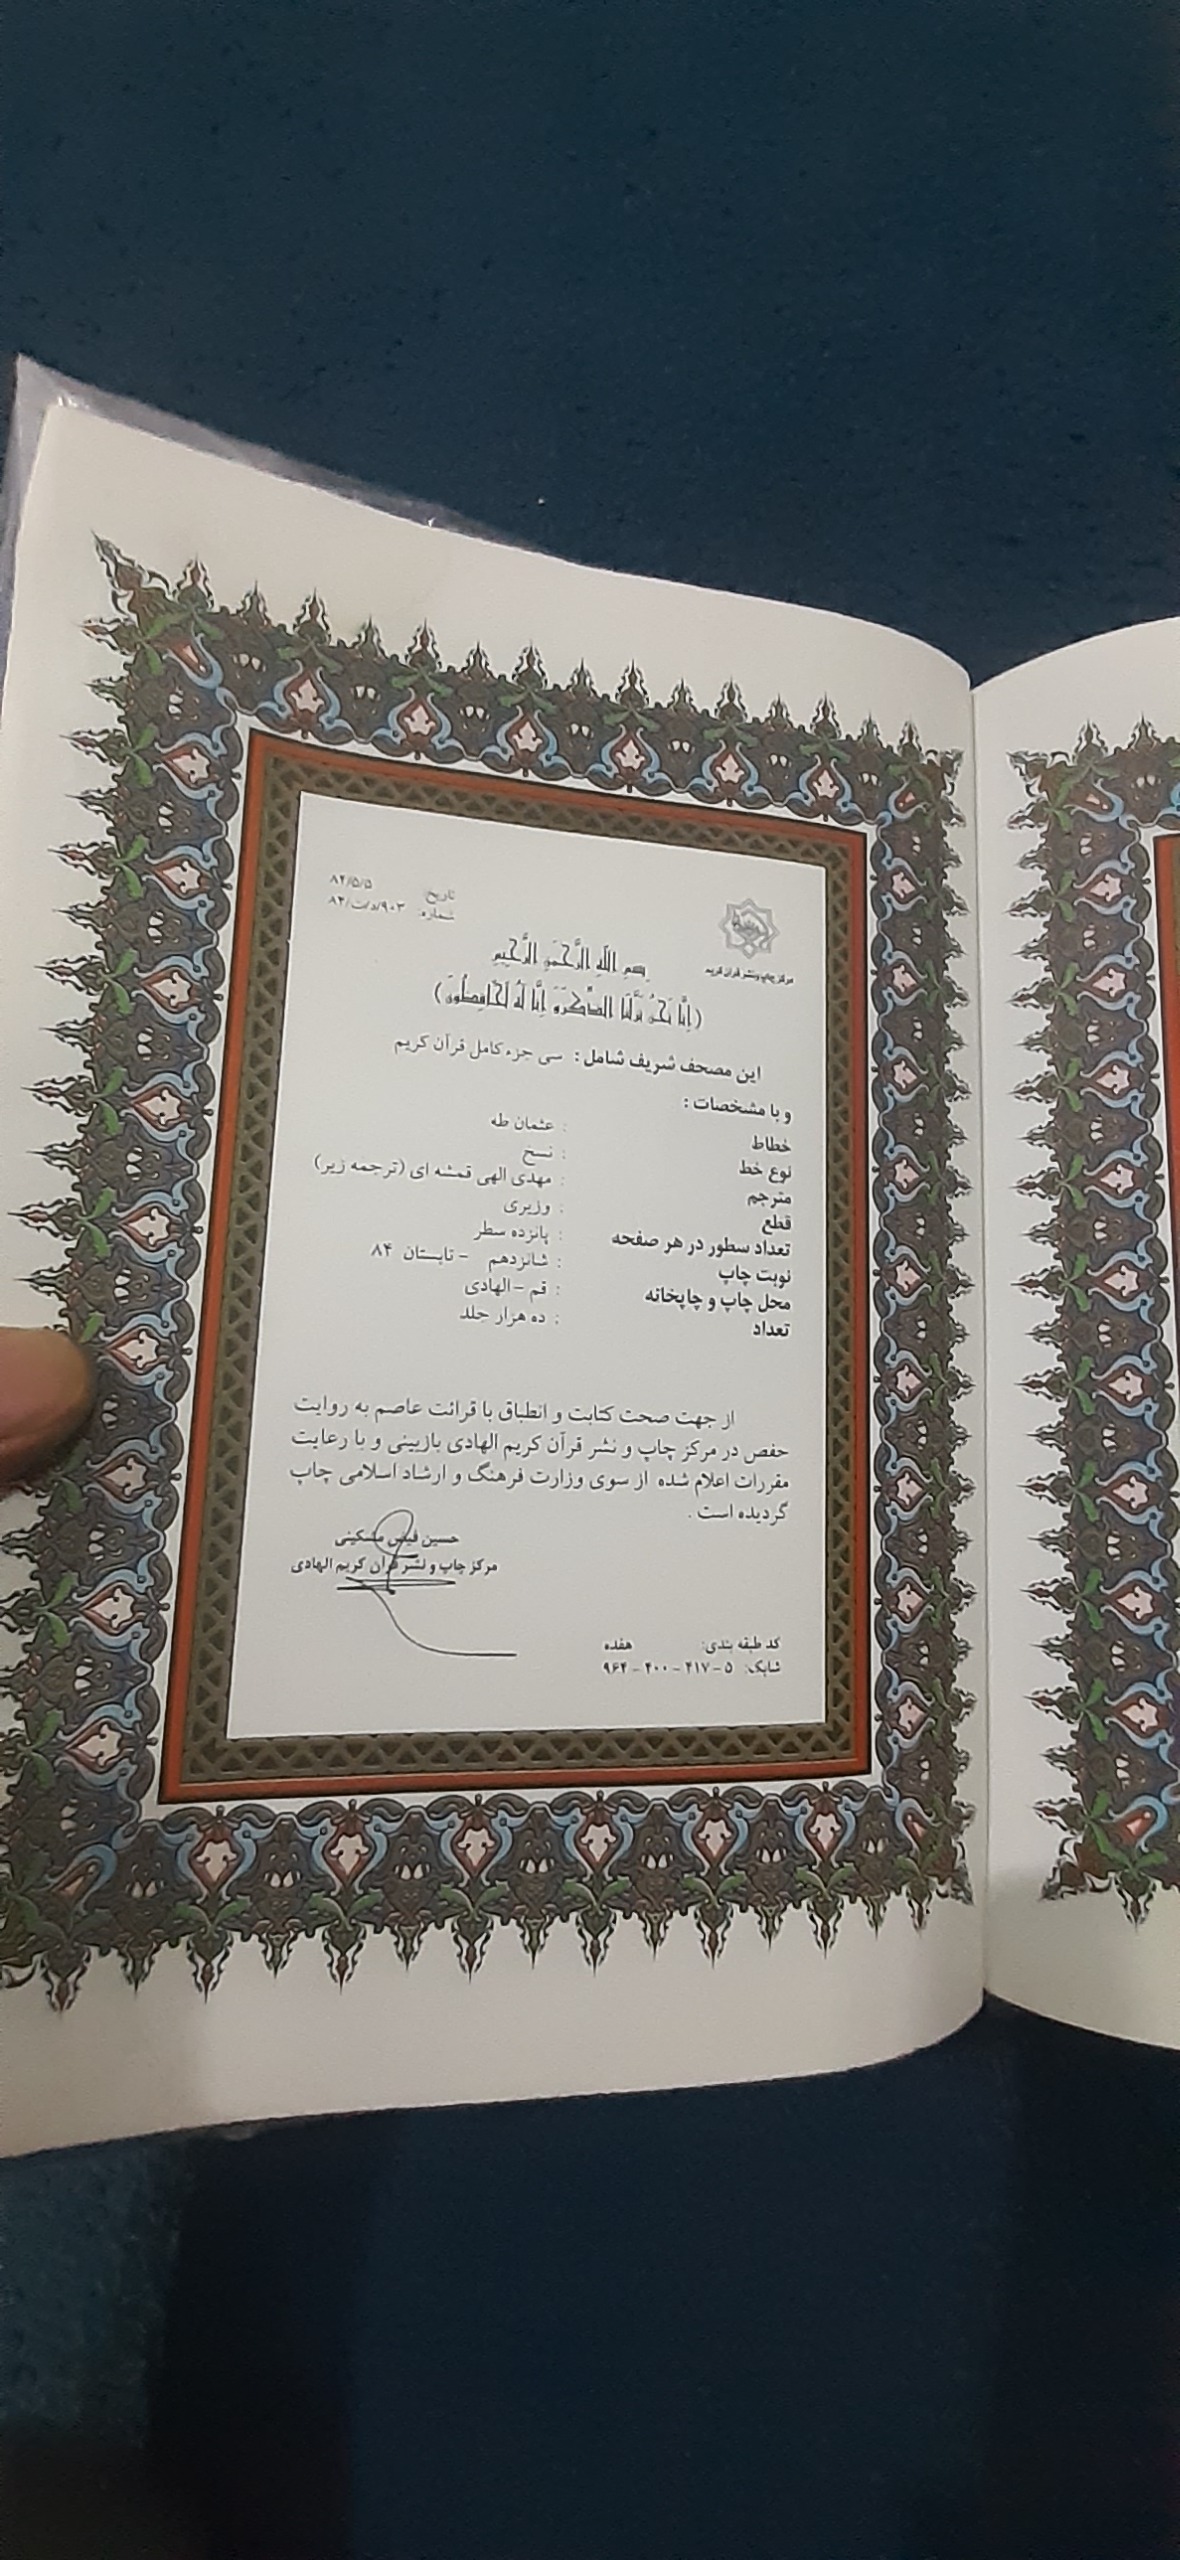 تاریخ: ۸۴/۵/۵
شماره: ۹۰۳/د/ت/۸۳
مرکز چاپ و نشر قرآن کریم
بِسْمِ اللهِ الرَّحْمَنِ الرَّحِیمِ
(إِنَّا نَحْنُ نَزَّلْنَا الذِّکْرَ وَ إِنَّا لَهُ لَحَافِظُونَ)
این مصحف شریف شامل : سی جزء کامل قرآن کریم
و با مشخصات :
خطاط : عثمان طه
نوع خط : نسخ
مترجم : مهدی الهی قمشه ای (ترجمه زیر)
قطع : وزیری
تعداد سطور در هر صفحه : پانزده سطر
نوبت چاپ : شانزدهم - تابستان ۸۴
محل چاپ و چاپخانه : قم - الهادی
تعداد : ده هزار جلد
از جهت صحت کتابت و انطباق با قرائت عاصم به روایت
حفص در مرکز چاپ و نشر قرآن کریم الهادی بازبینی و با رعایت
مقررات اعلام شده از سوی وزارت فرهنگ و ارشاد اسلامی چاپ
گردیده است .
حسین فیض مشکینی
مرکز چاپ و نشر قرآن کریم الهادی
کد طبقه بندی: هفده
شابک: ۵ - ۴۱۷ - ۴۰۰ - ۹۶۴